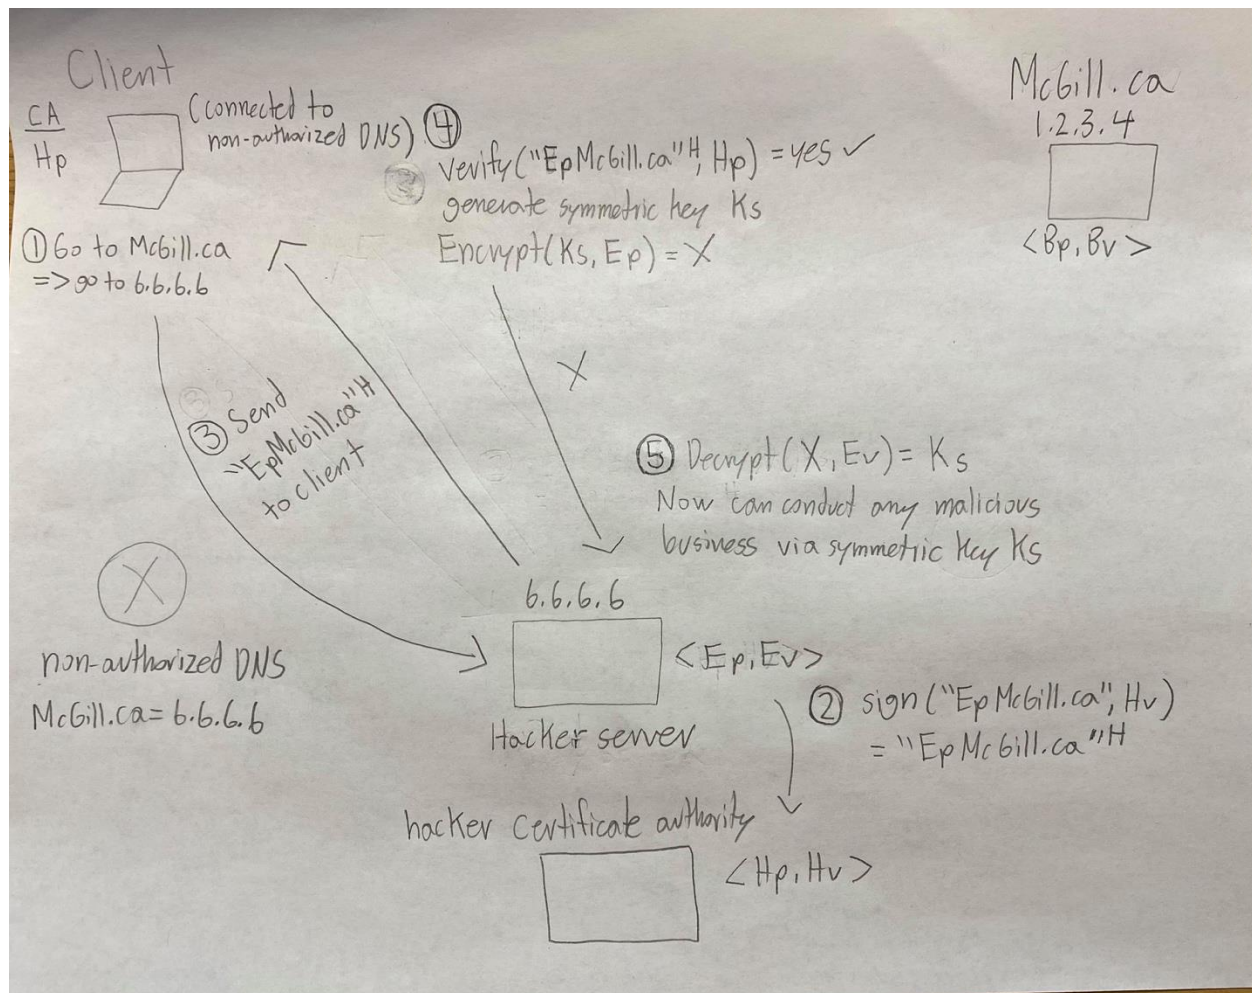 Client
CA
Hp
(connected to
non-authorized DNS)
① Go to McGill.ca
=> go to 6.6.6.6
④
verify("EpMcGill.ca"H, Hp) = yes ✓
generate symmetric key Ks
Encrypt(Ks, Ep) = X
McGill.ca
1.2.3.4
<Bp, Bv>
③ Send
"EpMcGill.ca"H
to client
X
⑤ Decrypt(X, Ev) = Ks
Now can conduct any malicious
business via symmetric key Ks
X
non-authorized DNS
McGill.ca = 6.6.6.6
6.6.6.6
<Ep, Ev>
Hacker server
② sign("EpMcGill.ca", Hv)
= "EpMcGill.ca"H
hacker certificate authority
<Hp, Hv>